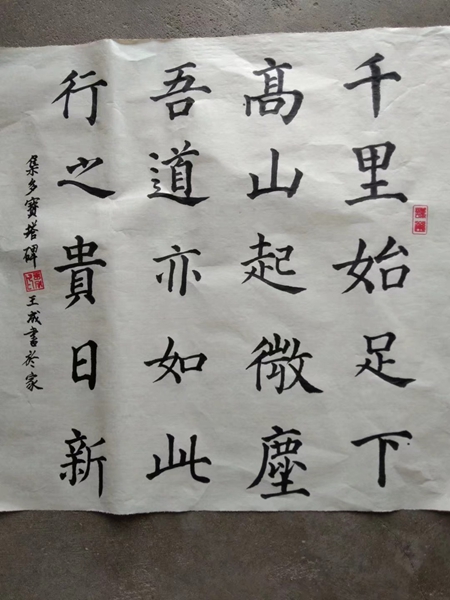 千里始足下
高山起微塵
吾道亦如此
行之貴日新
集多寳塔碑 王成書於家